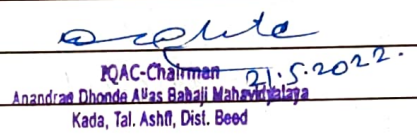 21.5.2022.
IQAC-Chairman
Anandrao Dhonde Alias Babaji Mahavidyalaya
Kada, Tal. Ashti, Dist. Beed